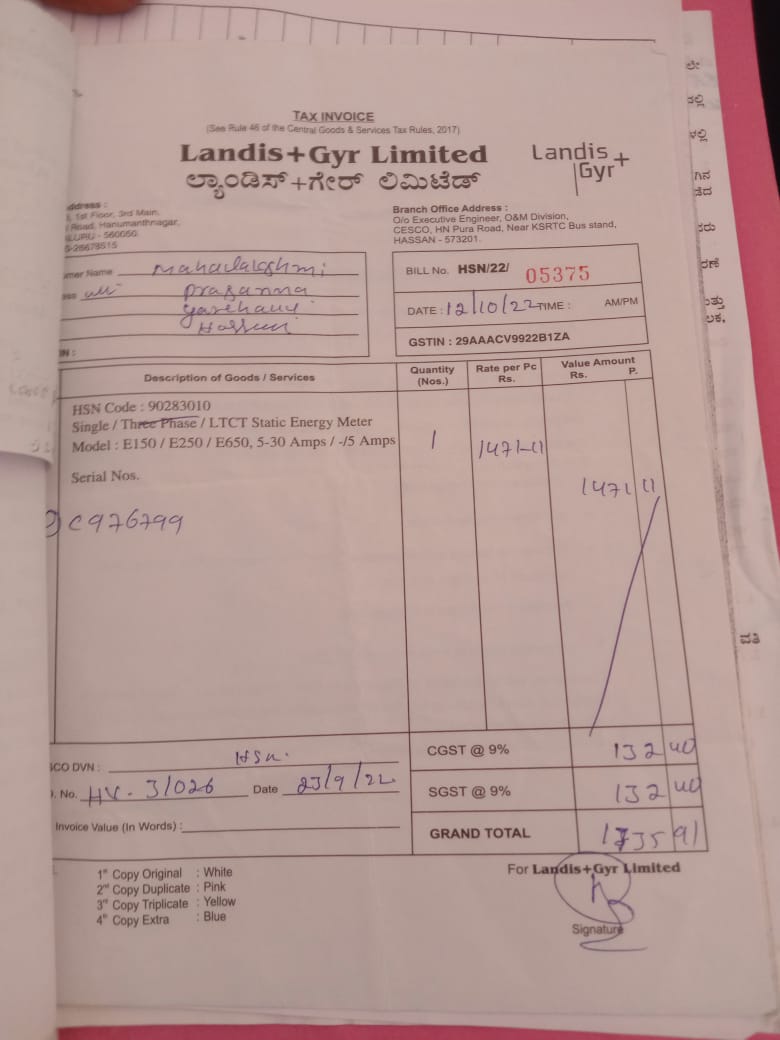 TAX INVOICE
(See Rule 46 of the Central Goods & Services Tax Rules, 2017)
Landis+Gyr Limited
ಲ್ಯಾಂಡಿಸ್+ಗೇರ್ ಲಿಮಿಟೆಡ್
Landis
Gyr+
ddress :
, 1st Floor, 3rd Main,
Road, Hanumanthnagar,
LURU - 560050.
-26678515
Branch Office Address :
O/o Executive Engineer, O&M Division,
CESCO, HN Pura Road, Near KSRTC Bus stand,
HASSAN - 573201.
mer Name Mahadalakshmi
ess prasanna
Hassan
IN :
BILL No. HSN/22/ 05375
DATE : 12/10/22 TIME : AM/PM
GSTIN : 29AAACV9922B1ZA
Description of Goods / Services Quantity (Nos.) Rate per Pc Rs. Value Amount Rs. P.
HSN Code : 90283010
Single / Three Phase / LTCT Static Energy Meter
Model : E150 / E250 / E650, 5-30 Amps / -/5 Amps 1 1471-11
Serial Nos.
1471 11
C976799
CO DVN : HSN.
. No. HV-3/026 Date 23/9/22
Invoice Value (In Words) :
CGST @ 9% 132 40
SGST @ 9% 132 40
GRAND TOTAL 1735 91
1st Copy Original : White
2nd Copy Duplicate : Pink
3rd Copy Triplicate : Yellow
4th Copy Extra : Blue
For Landis+Gyr Limited
Signature
ವತಿ